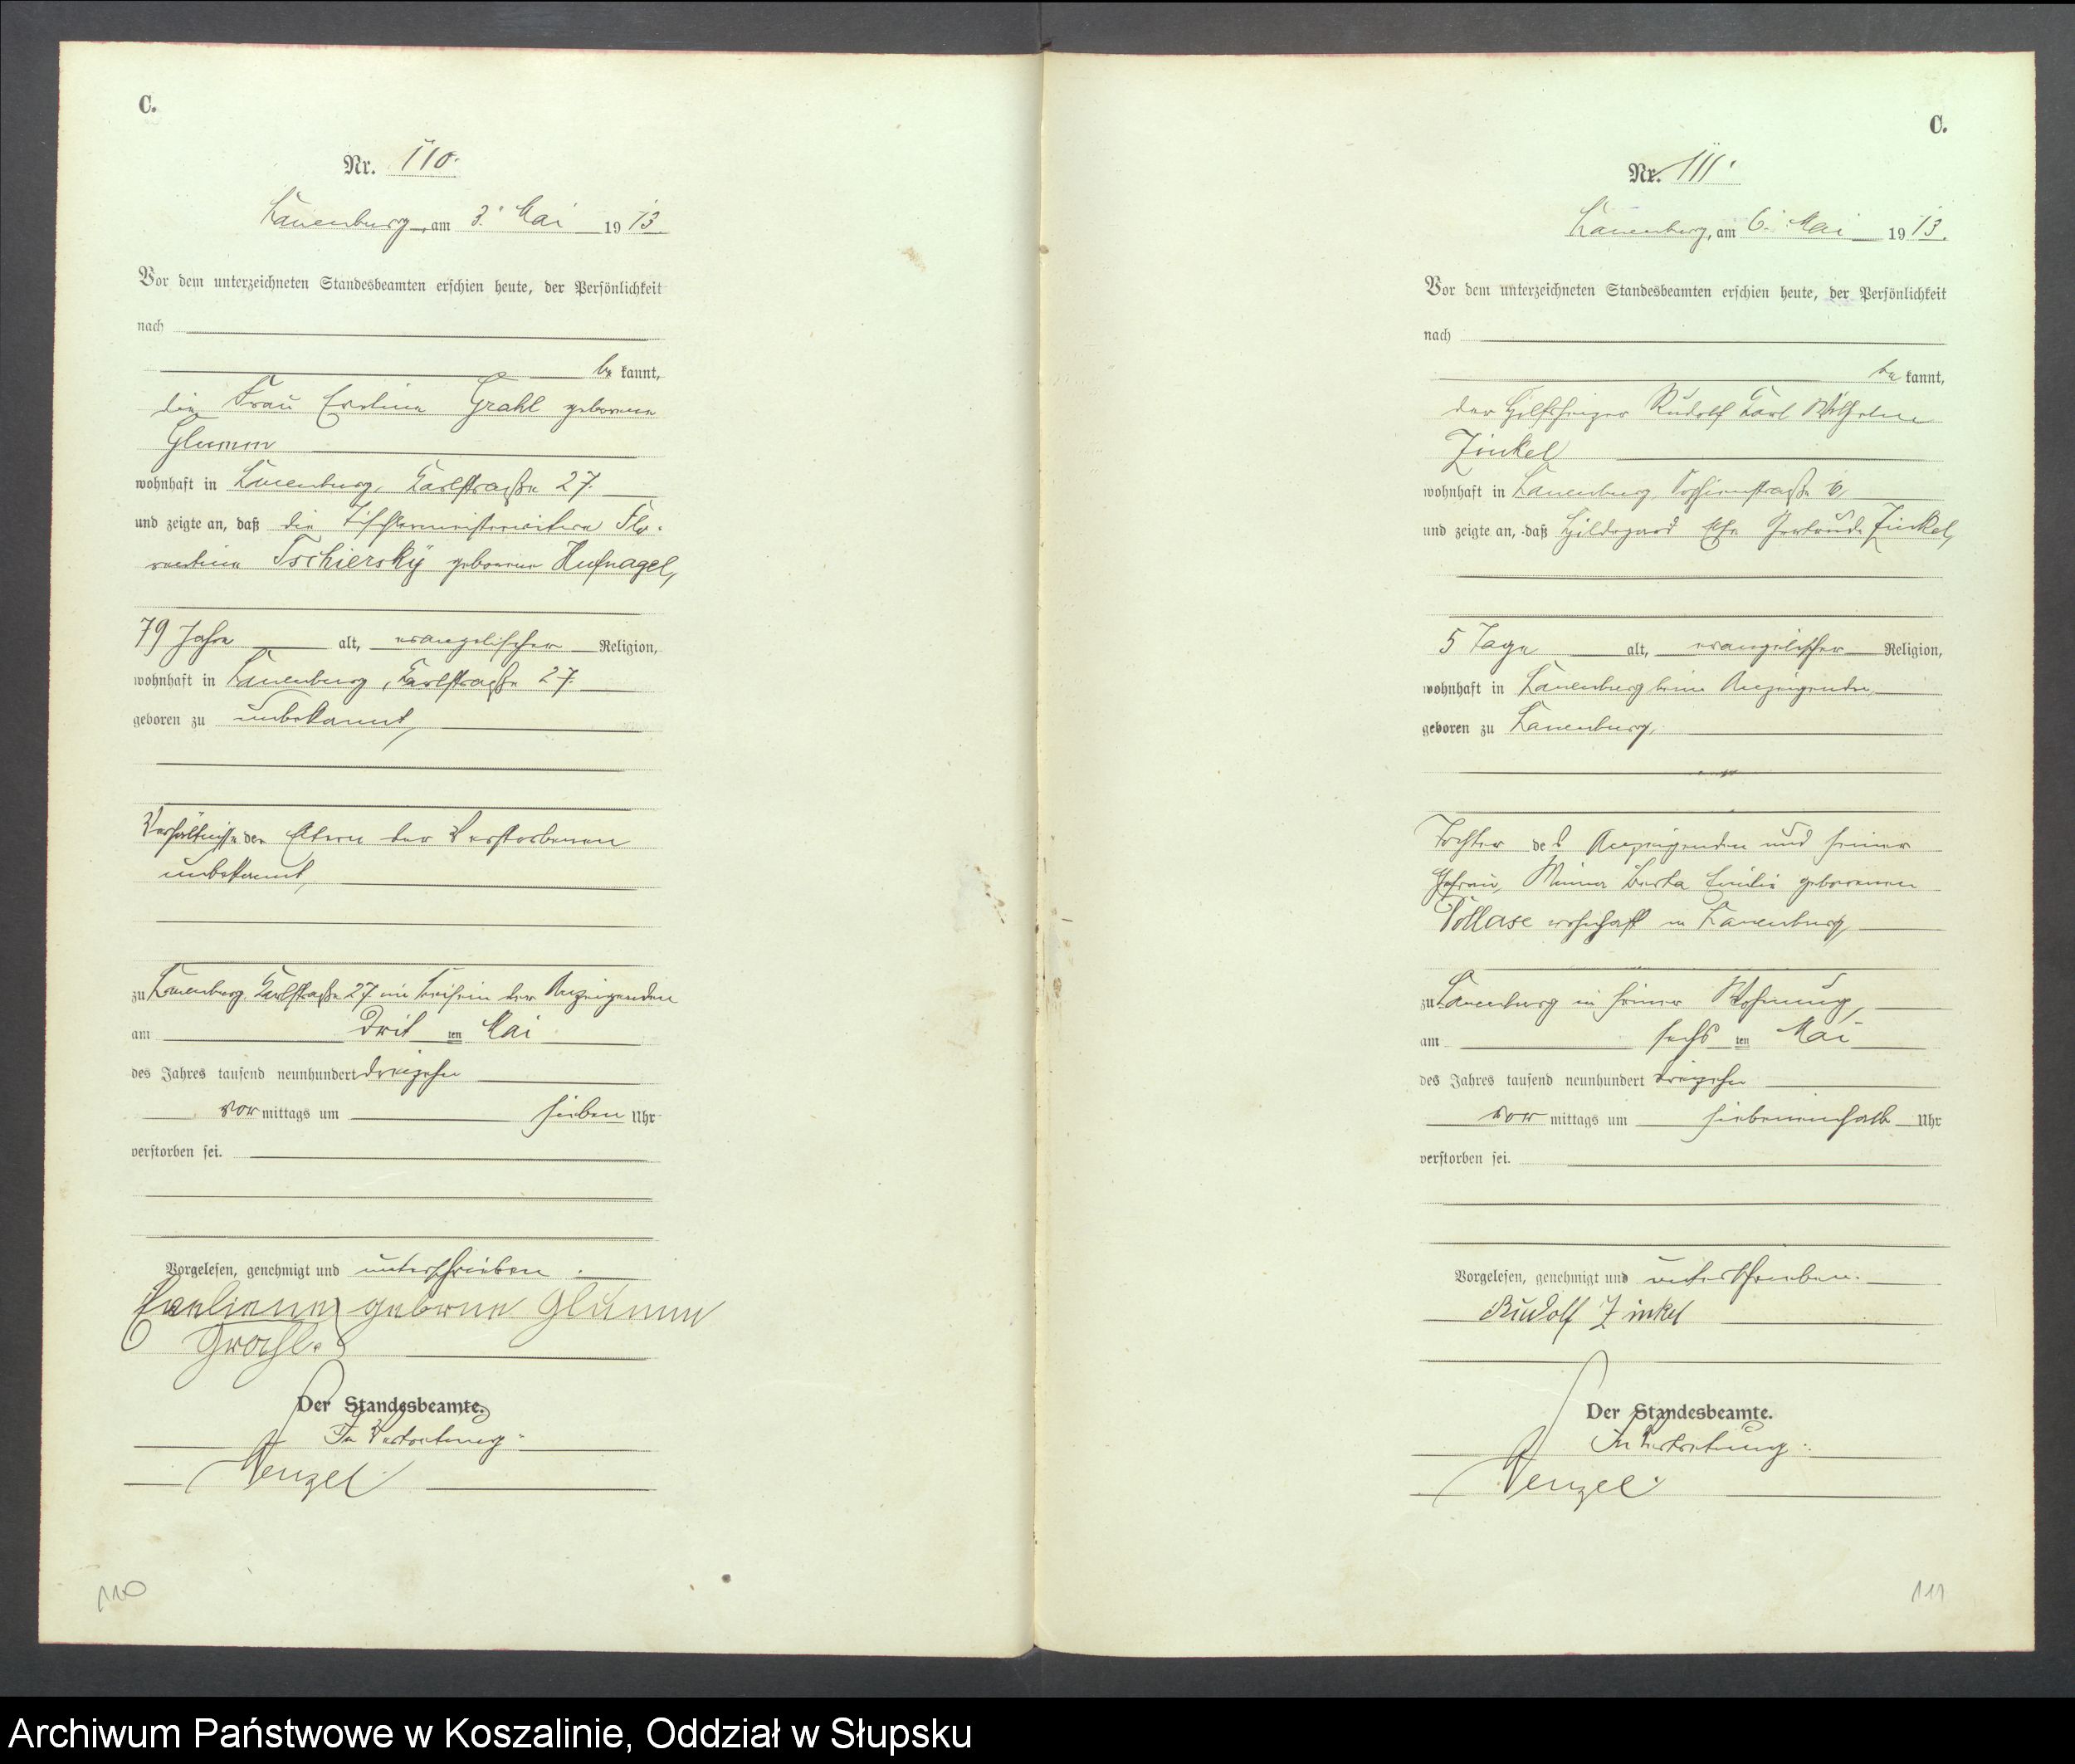 C.
Nr. 110.
Lauenburg, am 3. Mai 1913.
Vor dem unterzeichneten Standesbeamten erschien heute, der Persönlichkeit
nach
be kannt,
die Frau Eveline Grahl geborene
Glumm
wohnhaft in Lauenburg, Karlstraße 27.
und zeigte an, daß die Tischlermeisterwitwe Flo-
rentine Tschiersky geborene Hufnagel,
79 Jahre alt, evangelischer Religion,
wohnhaft in Lauenburg, Karlstraße 27.
geboren zu unbekannt,
Verhältnisse der Eltern der Verstorbenen
unbekannt,
zu Lauenburg, Karlstraße 27 im Beisein der Anzeigenden
am drit ten Mai
des Jahres tausend neunhundert dreizehn
vor mittags um sieben Uhr
verstorben sei.
Vorgelesen, genehmigt und unterschrieben.
Eveliene geborne Glumm
Grahl.
Der Standesbeamte.
In Vertretung:
Wenzel
110
C.
Nr. 111.
Lauenburg, am 6. Mai 1913.
Vor dem unterzeichneten Standesbeamten erschien heute, der Persönlichkeit
nach
be kannt,
der Hilfsheizer Rudolf Karl Wilhelm
Zinkel
wohnhaft in Lauenburg,
und zeigte an, daß Hildegard Gertrude Zinkel,
5 Tage alt, evangelischer Religion,
wohnhaft in Lauenburg beim Anzeigenden,
geboren zu Lauenburg,
Tochter des Anzeigenden und seiner
Ehefrau, Minna Berta Emilie geborenen
Pollase wohnhaft in Lauenburg,
zu Lauenburg in seiner Wohnung,
am sechs ten Mai
des Jahres tausend neunhundert dreizehn
vor mittags um siebeneinhalb Uhr
verstorben sei.
Vorgelesen, genehmigt und unterschrieben.
Rudolf Zinkel
Der Standesbeamte.
In Vertretung:
Wenzel.
111
Archiwum Państwowe w Koszalinie, Oddział w Słupsku